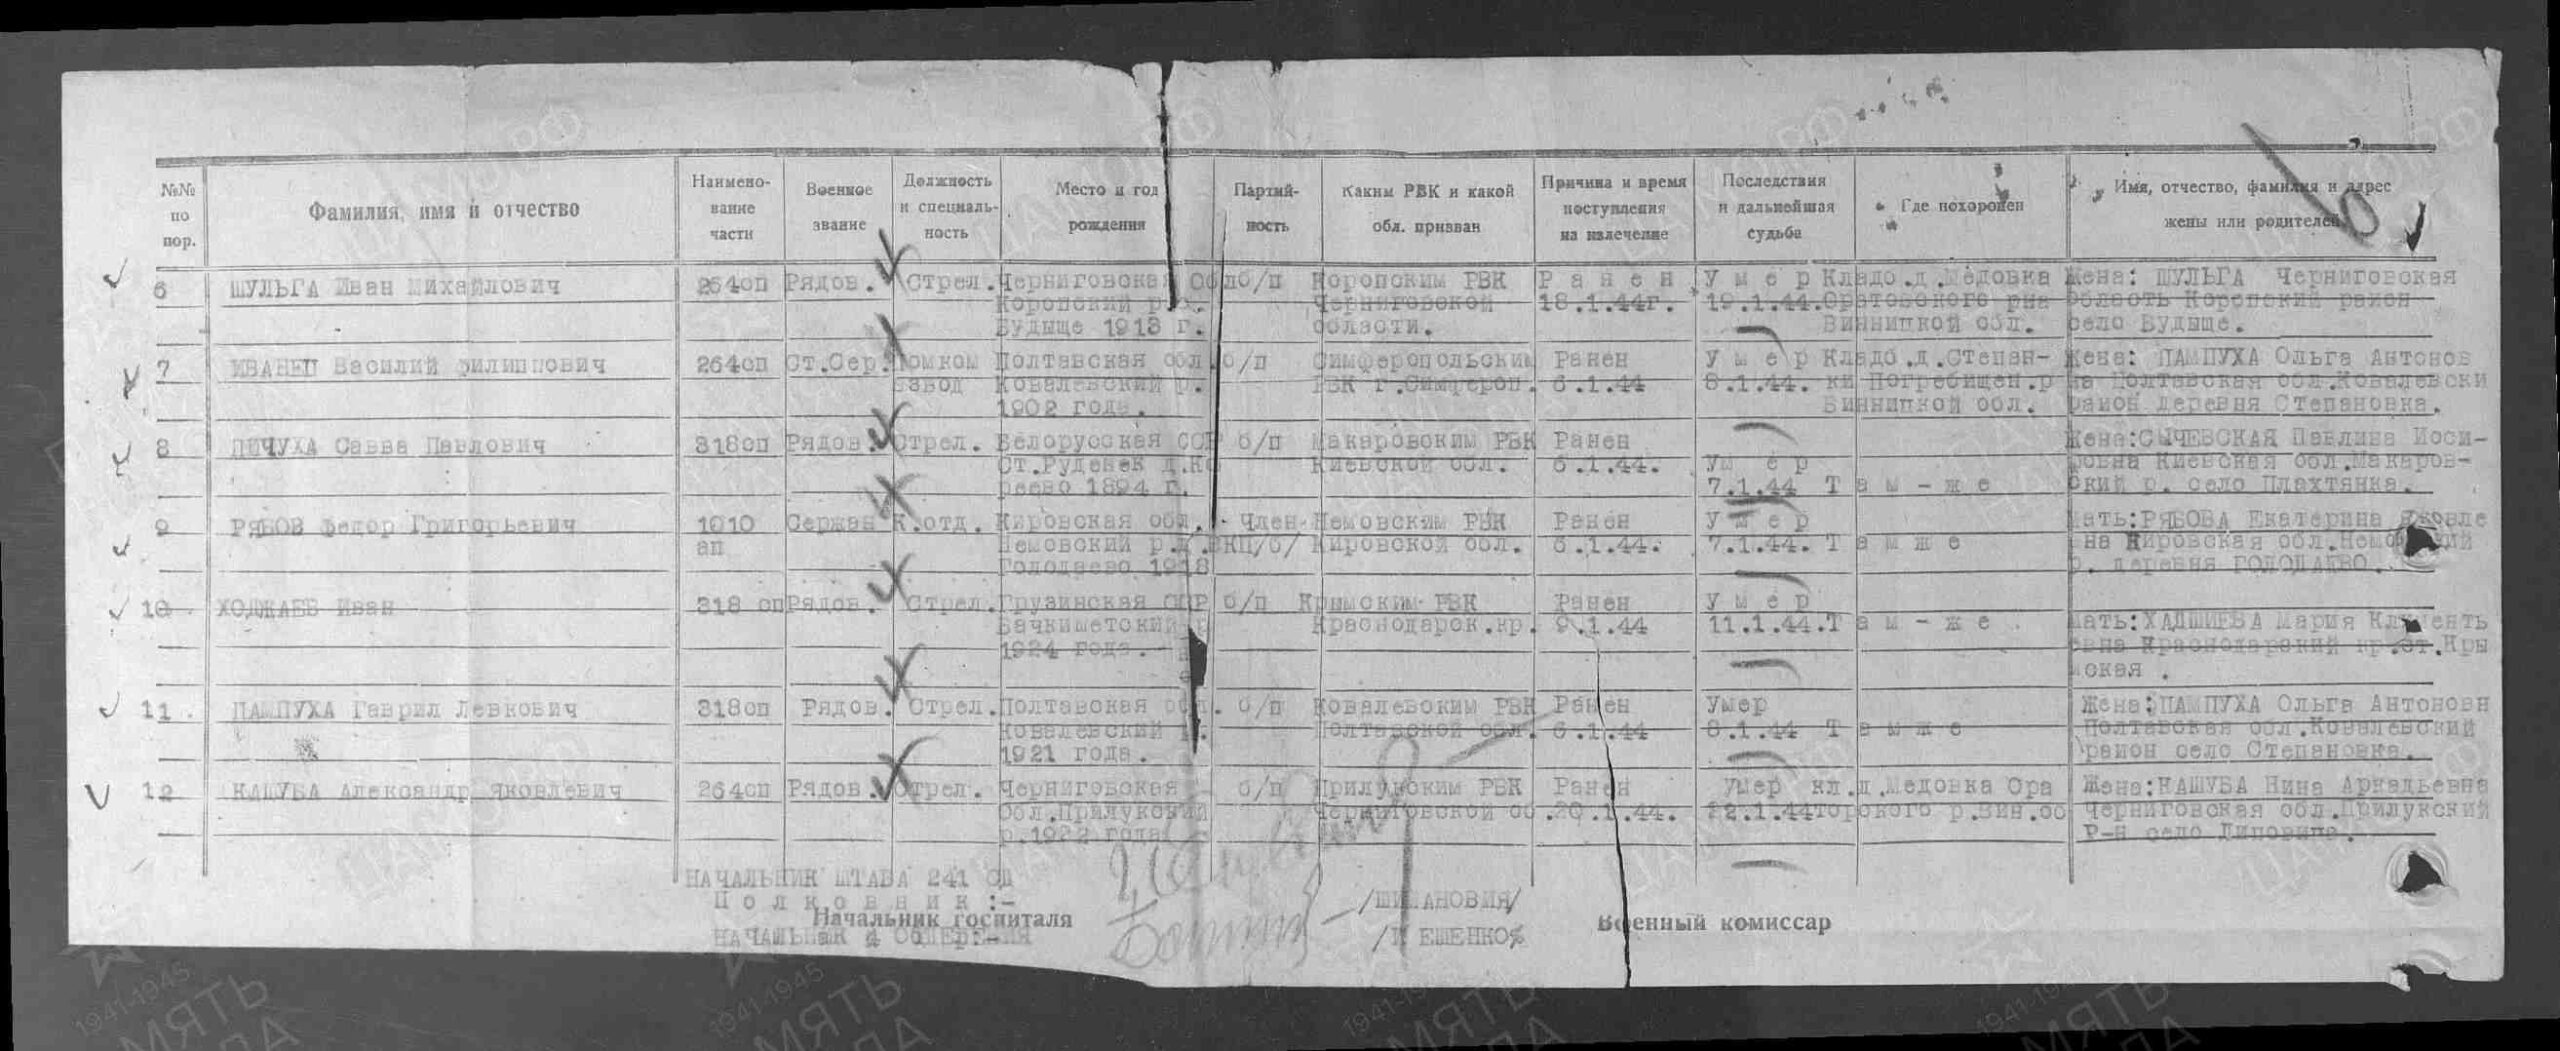 №№ по пор.
Фамилия, имя и отчество
Наимено-вание части
Военное звание
Должность и специаль-ность
Место и год рождения
Партий-ность
Каким РВК и какой обл. призван
Причина и время поступления на излечение
Последствия и дальнейшая судьба
Где похоронен
Имя, отчество, фамилия и адрес жены или родителей
6 ШУЛЬГА Иван Михайлович 264сп Рядов. Стрел. Черниговская Обл б/п Коропским РВК Р а н е н У м е р Кладо.д.Медовка Жена: ШУЛЬГА Черниговская
Коропский р Черниговской 18.1.44г. 19.1.44. Оратовского рна область Коропский район
Будыще 1913 г. области. Винницкой обл. село Будыще.
7 ИВАНЕЦ Василий Филиппович 264сп Ст.Сер. Помком Полтавская обл. б/п Симферопольским Ранен У м е р Кладо.д.Степан- Жена: ПАМПУХА Ольга Антонов
взвод Ковалевский р. РВК г.Симфероп. 6.1.44 8.1.44. ки Погребищен.р на Полтавская обл.Ковалевски
1902 года. Винницкой обл. район деревня Степановка.
8 ПИЧУХА Савва Павлович 318сп Рядов. Стрел. Белорусская ССР б/п Макаровским РВК Ранен Жена:СЫЧЕВСКАЯ Павлина Иоси-
Ст.Руденек д.Ко Киевской обл. 6.1.44. Ум е р фовна Киевская обл.Макаров-
реево 1894 г. 7.1.44 Т а м - ж е ский р. село Плахтянка.
9 РЯБОВ Федор Григорьевич 1010 Сержан К.отд. Кировская обл. Член Немовским РВК Ранен У м е р Мать:РЯБОВА Екатерина Яковле
ап Немовский р.д. ВКП/б/ Кировской обл. 6.1.44. 7.1.44. Т а м ж е на Кировская обл.
Голодаево 1918 р. деревня ГОЛОДАЕВО.
10 ХОДЖАЕВ Иван 318 сп Рядов. Стрел. Грузинская ССР б/п Крымским РВК Ранен У м е р
Бачкиметский р Краснодарск.кр. 9.1.44 11.1.44. Т а м - ж е . Мать:ХАДШИЕВА Мария Клименть
1924 года. евна Краснодарский кр.ст.Кры
мская .
11. ПАМПУХА Гаврил Левкович 318сп Рядов. Стрел. Полтавская обл. б/п Ковалевским РВК Ранен Умер Жена:ПАМПУХА Ольга Антоновн
Ковалевский Полтавской обл. 6.1.44 8.1.44 Т а м ж е Полтавская обл.Ковалевский
1921 года. район село Степановка.
12 КАШУБА Александр Яковлевич 264сп Рядов. Стрел. Черниговская б/п Прилукским РВК Ранен Умер кл.д.Медовка Ора Жена:КАШУБА Нина Аркадьевна
обл.Прилукский Черниговской об. 20.1.44. 22.1.44 торского р.вин.об Черниговская обл.Прилукский
р.1922 года Р-н село Липовица.
НАЧАЛЬНИК ШТАБА 241 СД
П о л к о в н и к :-
/ШИПАНОВИЯ/
Начальник госпиталя
Военный комиссар
НАЧАЛЬНИК 4
ЦАМО.РФ
1941-1945
ПАМЯТЬ НАРОДА